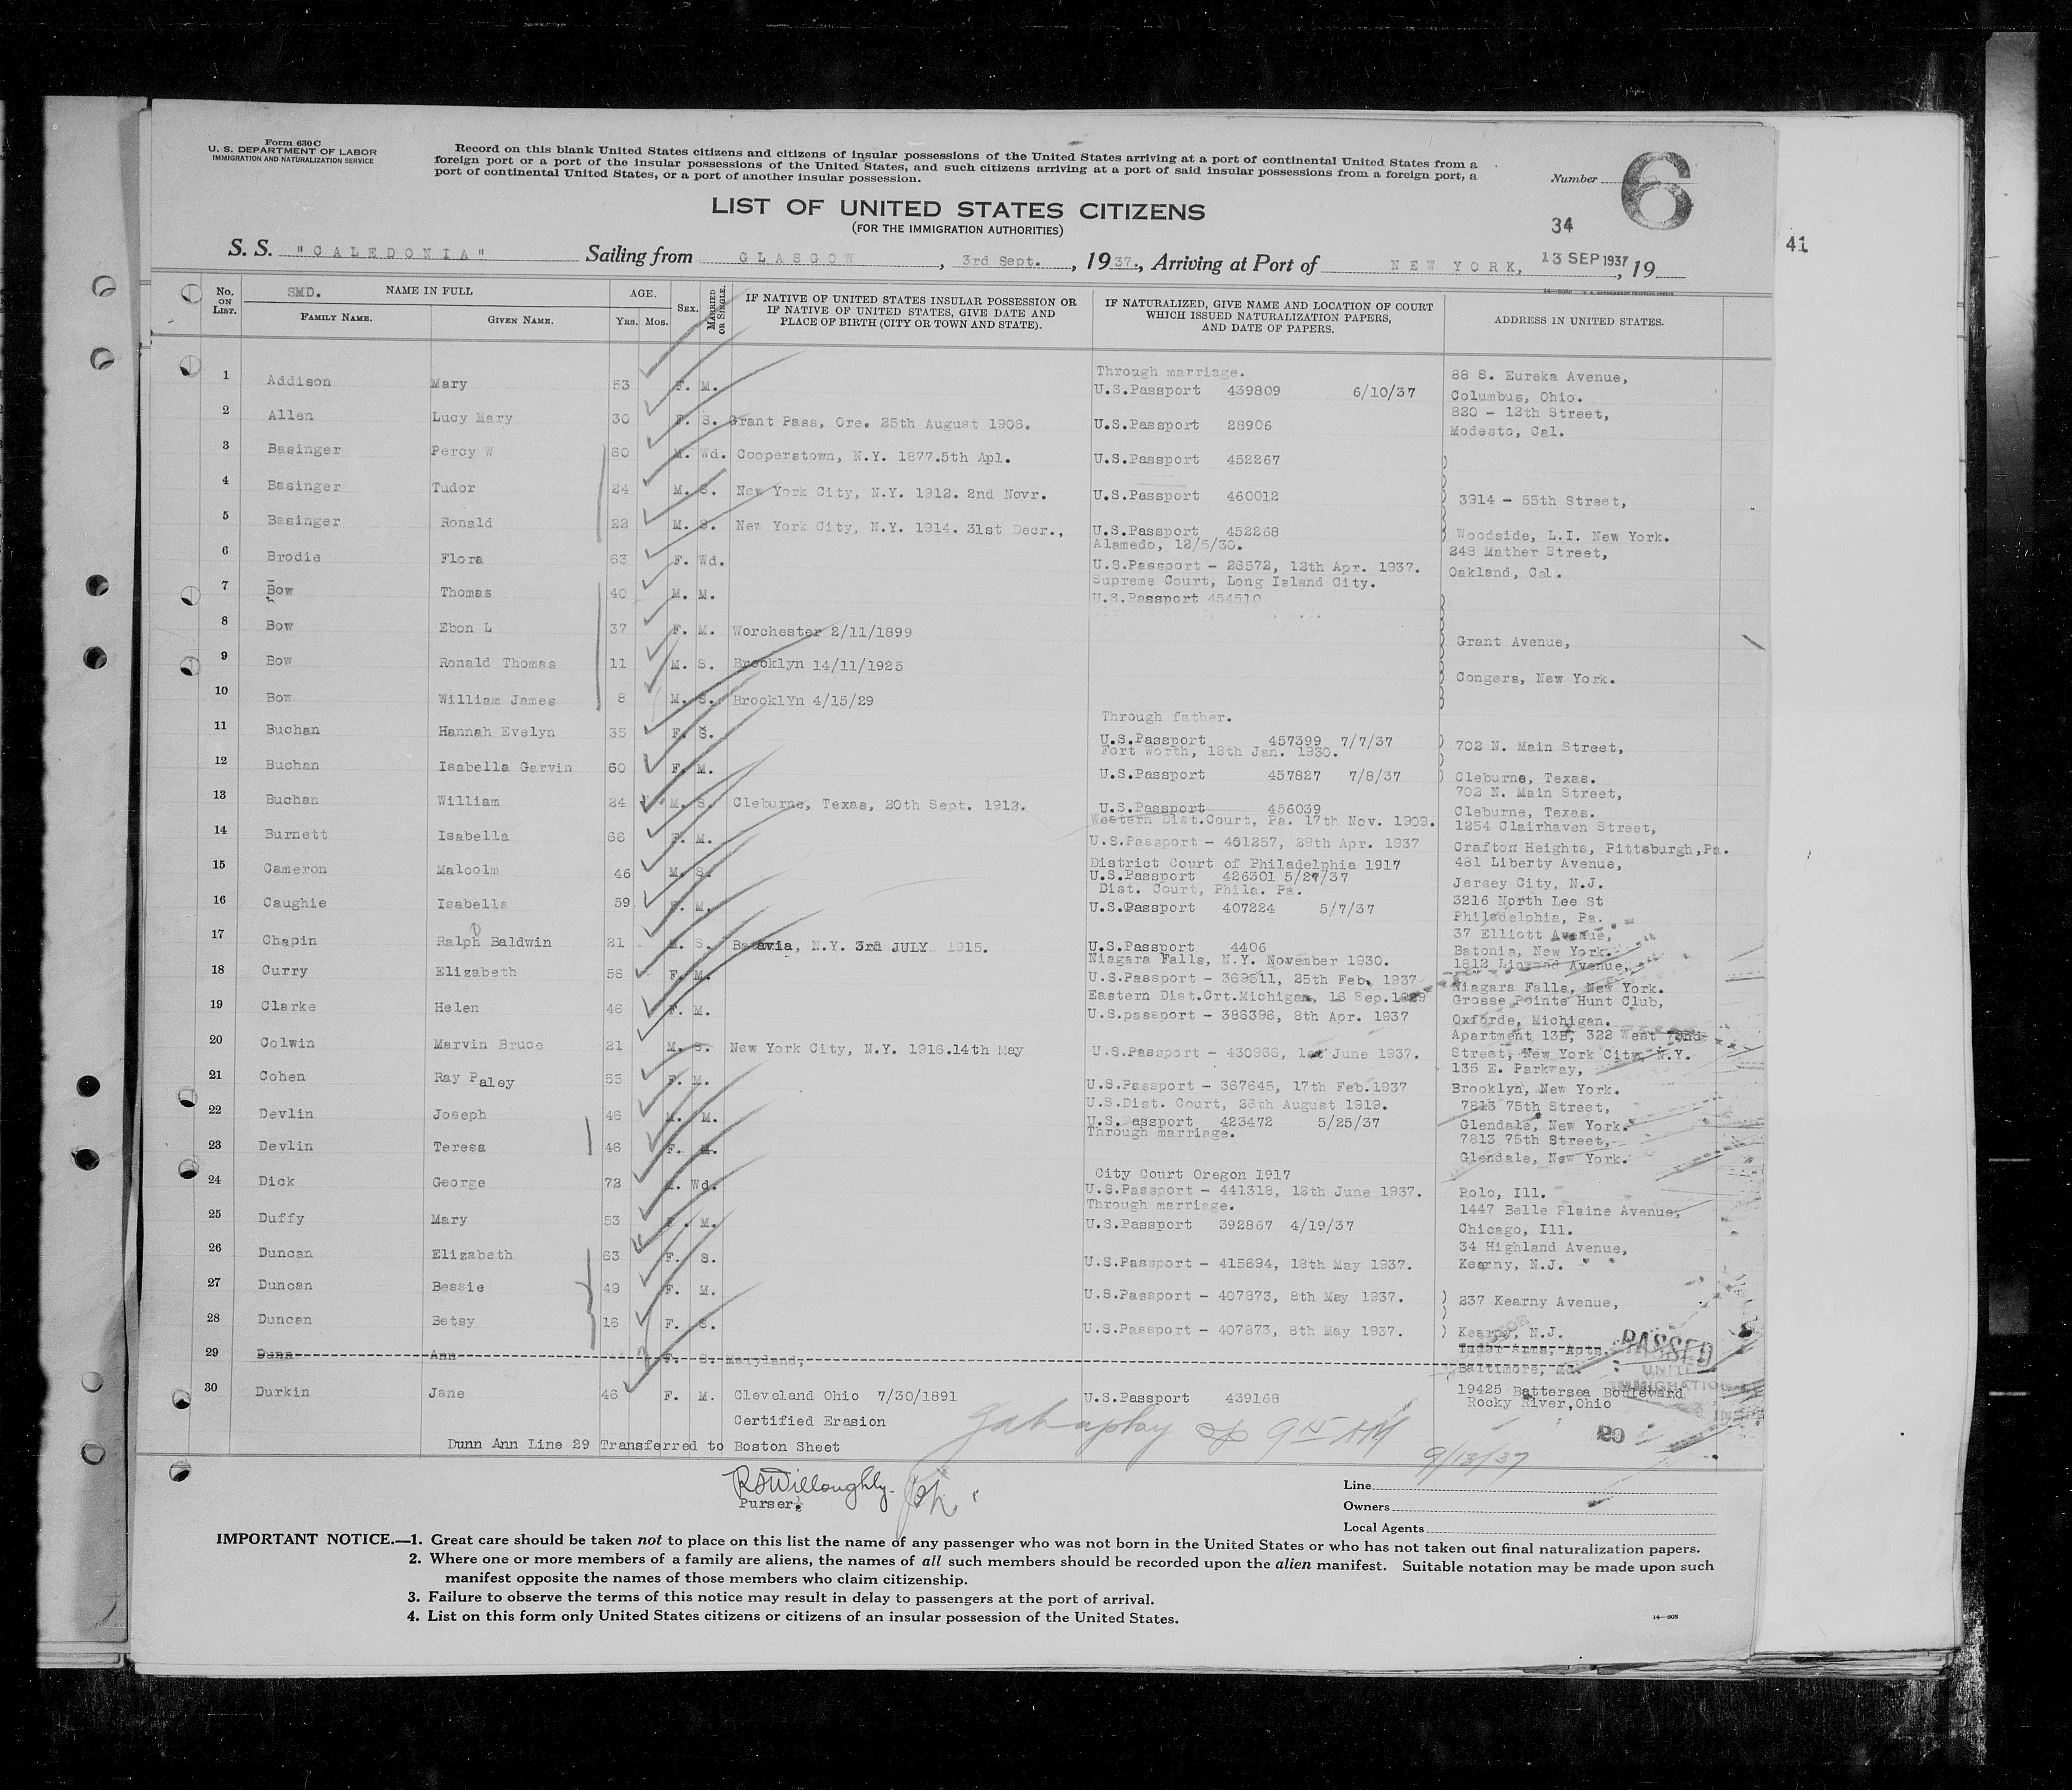 Form 630 C
U. S. DEPARTMENT OF LABOR
IMMIGRATION AND NATURALIZATION SERVICE
Record on this blank United States citizens and citizens of insular possessions of the United States arriving at a port of continental United States from a
foreign port or a port of the insular possessions of the United States, and such citizens arriving at a port of said insular possessions from a foreign port, a
port of continental United States, or a port of another insular possession.
Number 6
LIST OF UNITED STATES CITIZENS
(FOR THE IMMIGRATION AUTHORITIES)
34
41
S. S. "CALEDONIA" Sailing from GLASGOW, 3rd Sept., 1937., Arriving at Port of NEW YORK, 13 SEP 1937, 19
No. ON LIST. SMD. NAME IN FULL AGE. Sex. MARRIED OR SINGLE. IF NATIVE OF UNITED STATES INSULAR POSSESSION OR IF NATIVE OF UNITED STATES, GIVE DATE AND PLACE OF BIRTH (CITY OR TOWN AND STATE). IF NATURALIZED, GIVE NAME AND LOCATION OF COURT WHICH ISSUED NATURALIZATION PAPERS, AND DATE OF PAPERS. ADDRESS IN UNITED STATES.
FAMILY NAME. GIVEN NAME. Yrs. Mos.
1 Addison Mary 53 F. M. Through marriage. U.S.Passport 439809 6/10/37 88 S. Eureka Avenue, Columbus, Ohio.
2 Allen Lucy Mary 30 F. S. Grant Pass, Ore. 25th August 1906. U.S.Passport 28906 820 - 12th Street, Modesto, Cal.
3 Basinger Percy W 60 M. Wd. Cooperstown, N.Y. 1877.5th Apl. U.S.Passport 452267
4 Basinger Tudor 24 M. S. New York City, N.Y. 1912. 2nd Novr. U.S.Passport 460012 3914 - 55th Street,
5 Basinger Ronald 22 M. S. New York City, N.Y. 1914. 31st Decr., U.S.Passport 452268 Woodside, L.I. New York.
6 Brodie Flora 63 F. Wd. Alamedo, 12/5/30. U.S.Passport - 26572, 12th Apr. 1937. 248 Mather Street, Oakland, Cal.
7 Bow Thomas 40 M. M. Supreme Court, Long Island City. U.S.Passport 454510
8 Bow Ebon L 37 F. M. Worchester 2/11/1899 Grant Avenue,
9 Bow Ronald Thomas 11 M. S. Brooklyn 14/11/1925 Congers, New York.
10 Bow William James 8 M. S. Brooklyn 4/15/29
11 Buchan Hannah Evelyn 35 F. S. Through father. U.S.Passport 457399 7/7/37 702 N. Main Street,
12 Buchan Isabella Garvin 60 F. M. Fort Worth, 18th Jan. 1930. U.S.Passport 457827 7/8/37 Cleburne, Texas.
13 Buchan William 24 M. S. Cleburne, Texas, 20th Sept. 1912. U.S.Passport 456039 702 N. Main Street, Cleburne, Texas.
14 Burnett Isabella 66 F. M. Western Dist.Court, Pa. 17th Nov. 1909. U.S.Passport - 401257, 29th Apr. 1937 1254 Clairhaven Street, Crafton Heights, Pittsburgh,Pa.
15 Cameron Malcolm 46 M. S. District Court of Philadelphia 1917 U.S.Passport 426301 5/27/37 481 Liberty Avenue, Jersey City, N.J.
16 Caughie Isabella 59 F. M. Dist. Court, Phila. Pa. U.S.Passport 407224 5/7/37 3216 North Lee St Philadelphia, Pa.
17 Chapin Ralph Baldwin 21 M. S. Batavia, N.Y. 3rd JULY 1915. U.S.Passport 4406 37 Elliott Avenue, Batonia, New York.
18 Curry Elizabeth 56 F. M. Niagara Falls, N.Y. November 1930. U.S.Passport - 369511, 25th Feb. 1937 1812 Linwood Avenue, Niagara Falls, New York.
19 Clarke Helen 46 F. M. Eastern Dist.Crt.Michigan, 16 Sep. U.S.passport - 386396, 8th Apr. 1937 Grosse Pointe Hunt Club, Oxforde, Michigan.
20 Colwin Marvin Bruce 21 M. S. New York City, N.Y. 1916.14th May U.S.Passport - 430966, 1st June 1937. Apartment 13B, 322 West 72nd Street, New York City, N.Y.
21 Cohen Ray Paley 55 F. M. U.S.Passport - 367645, 17th Feb.1937 135 E. Parkway, Brooklyn, New York.
22 Devlin Joseph 46 M. M. U.S.Dist. Court, 26th August 1919. U.S.Passport 423472 5/25/37 7813 75th Street, Glendale, New York.
23 Devlin Teresa 46 F. M. Through marriage. 7813 75th Street, Glendale, New York.
24 Dick George 73 M. Wd. City Court Oregon 1917 U.S.Passport - 441318, 12th June 1937. Polo, Ill.
25 Duffy Mary 53 F. M. Through marriage. U.S.Passport 392867 4/19/37 1447 Belle Plaine Avenue, Chicago, Ill.
26 Duncan Elizabeth 63 F. S. U.S.Passport - 415694, 18th May 1937. 34 Highland Avenue, Kearny, N.J.
27 Duncan Bessie 49 F. M. U.S.Passport - 407873, 8th May 1937. 237 Kearny Avenue,
28 Duncan Betsy 16 F. S. U.S.Passport - 407873, 8th May 1937. Kearny, N.J.
29 Dunn Ann F. S. Maryland, Tudor Arms, Apts. Baltimore, Md.
PASSED
IMMIGRATION
30 Durkin Jane 46 F. M. Cleveland Ohio 7/30/1891 U.S.Passport 439168 19425 Battersea Boulevard Rocky River,Ohio
Certified Erasion
20
Dunn Ann Line 29 Transferred to Boston Sheet
9 15 AM
9/13/37
RSWilloughly.
Purser.
Line
Owners
Local Agents
IMPORTANT NOTICE.—1. Great care should be taken not to place on this list the name of any passenger who was not born in the United States or who has not taken out final naturalization papers.
2. Where one or more members of a family are aliens, the names of all such members should be recorded upon the alien manifest. Suitable notation may be made upon such
manifest opposite the names of those members who claim citizenship.
3. Failure to observe the terms of this notice may result in delay to passengers at the port of arrival.
4. List on this form only United States citizens or citizens of an insular possession of the United States.
14—608